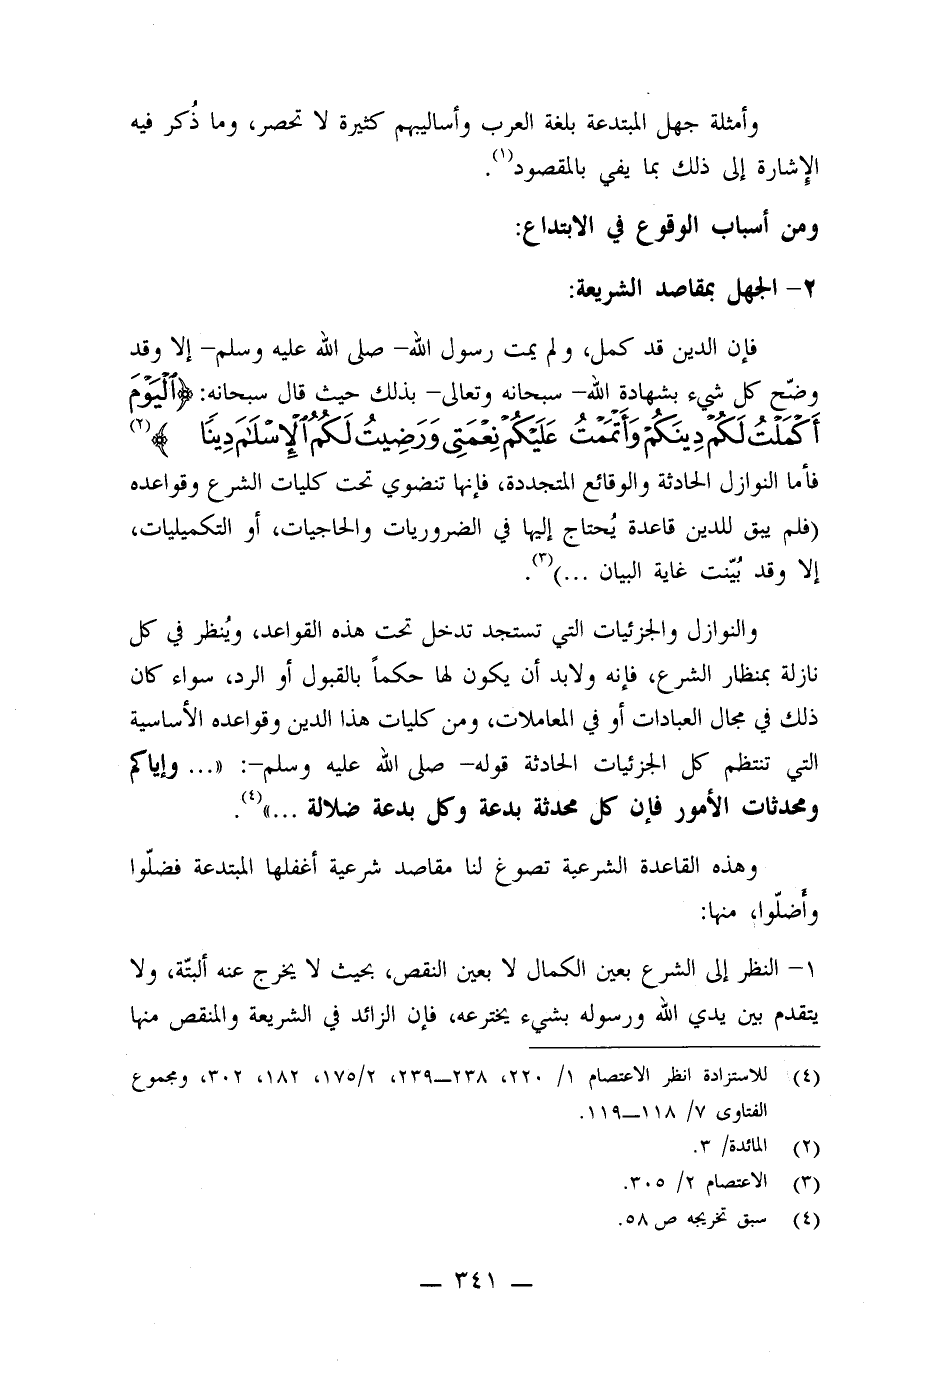 وأمثلة جهل المبتدعة بلغة العرب وأساليبهم كثيرة لا تحصر، وما ذُكر فيه
الإشارة إلى ذلك بما يفي بالمقصود(١).
ومن أسباب الوقوع في الابتداع:
٢- الجهل بمقاصد الشريعة:
فإن الدين قد كمل، ولم يمت رسول الله- صلى الله عليه وسلم- إلا وقد
وضّح كل شيء بشهادة الله- سبحانه وتعالى- بذلك حيث قال سبحانه: ﴿ٱلْيَوْمَ
أَكْمَلْتُ لَكُمْ دِينَكُمْ وَأَتْمَمْتُ عَلَيْكُمْ نِعْمَتِى وَرَضِيتُ لَكُمُ ٱلْإِسْلَٰمَ دِينًا ﴾(٢)
فأما النوازل الحادثة والوقائع المتجددة، فإنها تنضوي تحت كليات الشرع وقواعده
(فلم يبق للدين قاعدة يُحتاج إليها في الضروريات والحاجيات، أو التكميليات،
إلا وقد بُيّنت غاية البيان ...)(٣).
والنوازل والجزئيات التي تستجد تدخل تحت هذه القواعد، ويُنظر في كل
نازلة بمنظار الشرع، فإنه ولابد أن يكون لها حكماً بالقبول أو الرد، سواء كان
ذلك في مجال العبادات أو في المعاملات، ومن كليات هذا الدين وقواعده الأساسية
التي تنتظم كل الجزئيات الحادثة قوله- صلى الله عليه وسلم-: «... وإياكم
ومحدثات الأمور فإن كل محدثة بدعة وكل بدعة ضلالة ...»(٤).
وهذه القاعدة الشرعية تصوغ لنا مقاصد شرعية أغفلها المبتدعة فضلّوا
وأَضلّوا، منها:
١- النظر إلى الشرع بعين الكمال لا بعين النقص، بحيث لا يخرج عنه ألبتّة، ولا
يتقدم بين يدي الله ورسوله بشيء يخترعه، فإن الزائد في الشريعة والمنقص منها
(٤) للاستزادة انظر الاعتصام ١/ ٢٢٠، ٢٣٨ـ٢٣٩، ١٧٥/٢، ١٨٢، ٣٠٢، ومجموع
الفتاوى ٧/ ١١٨ـ١١٩.
(٢) المائدة/ ٣.
(٣) الاعتصام ٢/ ٣٠٥.
(٤) سبق تخريجه ص٥٨.
— ٣٤١ —